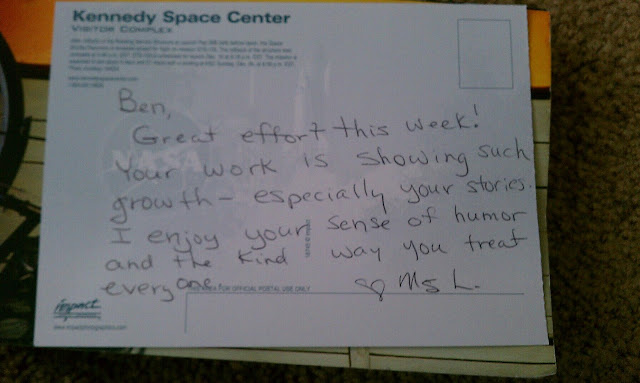 Kennedy Space Center
VISITOR COMPLEX
Ben,
Great effort this week!
Your work is showing such
growth - especially your stories.
I enjoy your sense of humor
and the kind way you treat
everyone.
♡ Ms L.
AREA FOR OFFICIAL POSTAL USE ONLY
impact
www.impactphotographics.com
NASA